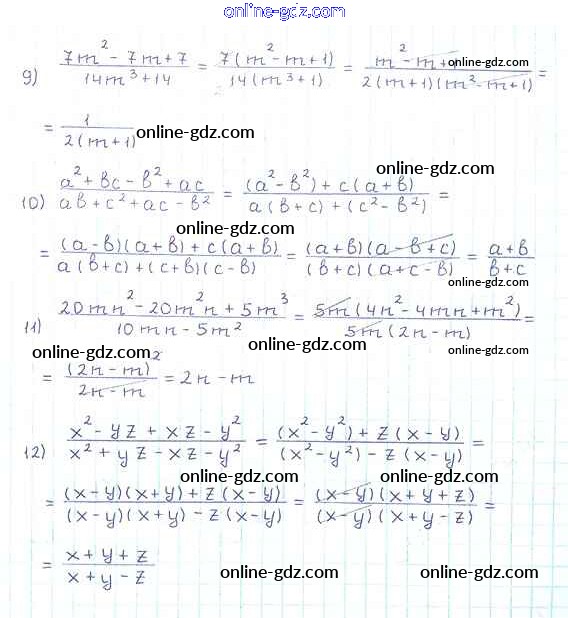 online-gdz.com
9) (7m² - 7m + 7)/(14m³ + 14) = 7(m² - m + 1)/14(m³ + 1) = (m² - m + /2(m + 1)(m² - m + 1) =
online-gdz.com
= 1/2(m + 1) online-gdz.com
10) (a² + bc - b² + ac)/(ab + c² + ac - b²) = ((a² - b²) + c(a + b))/(a(b + c) + (c² - b²)) =
online-gdz.com
online-gdz.com
= ((a - b)(a + b) + c(a + b))/(a(b + c) + (c + b)(c - b)) = (a + b)(a - b + c)/(b + c)(a + c - b) = (a + b)/(b + c)
online-gdz.com
11) (20mn² - 20m²n + 5m³)/(10mn - 5m²) = 5m(4n² - 4mn + m²)/5m(2n - m) =
online-gdz.com
online-gdz.com
online-gdz.com
= (2n - m)²/(2n - m) = 2n - m
online-gdz.com
12) (x² - yz + xz - y²)/(x² + yz - xz - y²) = ((x² - y²) + z(x - y))/((x² - y²) - z(x - y)) =
online-gdz.com online-gdz.com
= ((x - y)(x + y) + z(x - y))/((x - y)(x + y) - z(x - y)) = (x - y)(x + y + z)/(x - y)(x + y - z) =
online-gdz.com online-gdz.com
= (x + y + z)/(x + y - z)
online-gdz.com online-gdz.com